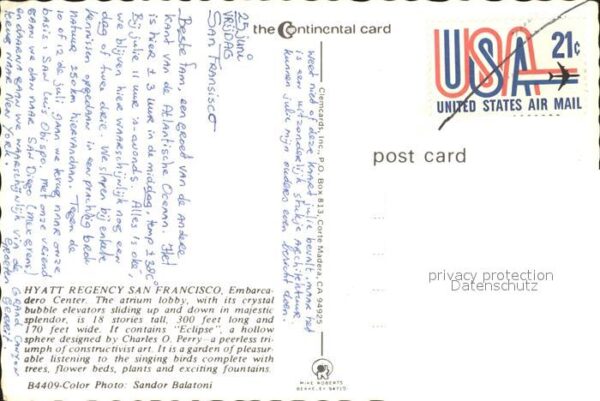 the Continental card
USA 21c
UNITED STATES AIR MAIL
post card
Clemcards, Inc., P.O. Box 813, Corte Madera, CA 94925
25 Juni
VRIJDAG
SAN FRANSISCO
Beste fam, een groet van de andere
kant van de Atlantische Oceaan. Het
is hier ± 3 uur in de middag, temp ± 38°C
Bij jullie 11 uur 's-avonds. Alles is oké,
we blijven hier waarschijnlijk nog een
dag of twee drie. We slapen bij enkele
kennissen opgedaan in een prachtig brok
natuur 250 km hiervandaan. Tegen de
10 of 12 de juli gaan we terug naar onze
basis: San Luis Obispo, met onze vriend
gaan we dan naar San Diego (Mex grens)
en daarna gaan we waarschijnlijk via de Grand Canyon
terug naar New York. Groeten
Gerrit.
Weet niet of deze kaart jullie bevalt, maar het
is een uitzonderlijk stukje architektuur.
Kunnen jullie mijn ouders even bericht doen.
HYATT REGENCY SAN FRANCISCO, Embarca-
dero Center. The atrium lobby, with its crystal
bubble elevators sliding up and down in majestic
splendor, is 18 stories tall, 300 feet long and
170 feet wide. It contains "Eclipse", a hollow
sphere designed by Charles O. Perry—a peerless tri-
umph of constructivist art. It is a garden of pleasur-
able listening to the singing birds complete with
trees, flower beds, plants and exciting fountains.
B4409-Color Photo: Sandor Balatoni
MIKE ROBERTS
BERKELEY 94710
privacy protection
Datenschutz